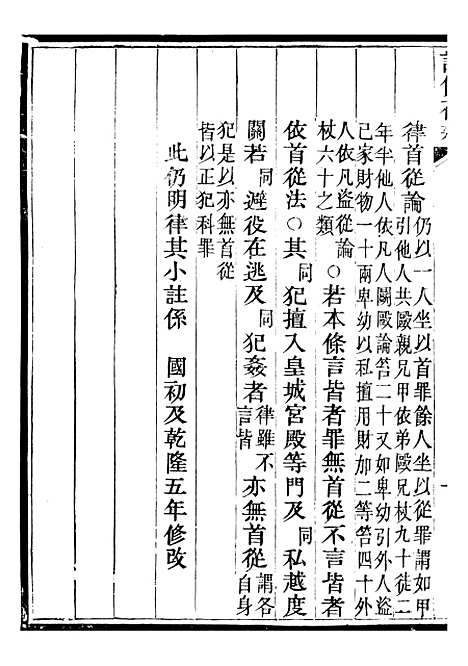 律首從論仍以一人坐以首罪餘人坐以從罪謂如甲
引他人共毆親兄甲依弟毆兄杖九十徒二
年半他人依凡人鬬毆論笞二十又如卑幼引外人盜
已家財物一十兩卑幼以私擅用財加二等笞四十外
人依凡盜從論
杖六十之類○若本條言皆者罪無首從不言皆者
依首從法○其同犯擅入皇城宮殿等門及同私越度
關若同避役在逃及同犯姦者律雖不言皆亦無首從謂各自身
犯是以亦無首從
皆以正犯科罪
此仍明律其小註係 國初及乾隆五年修改